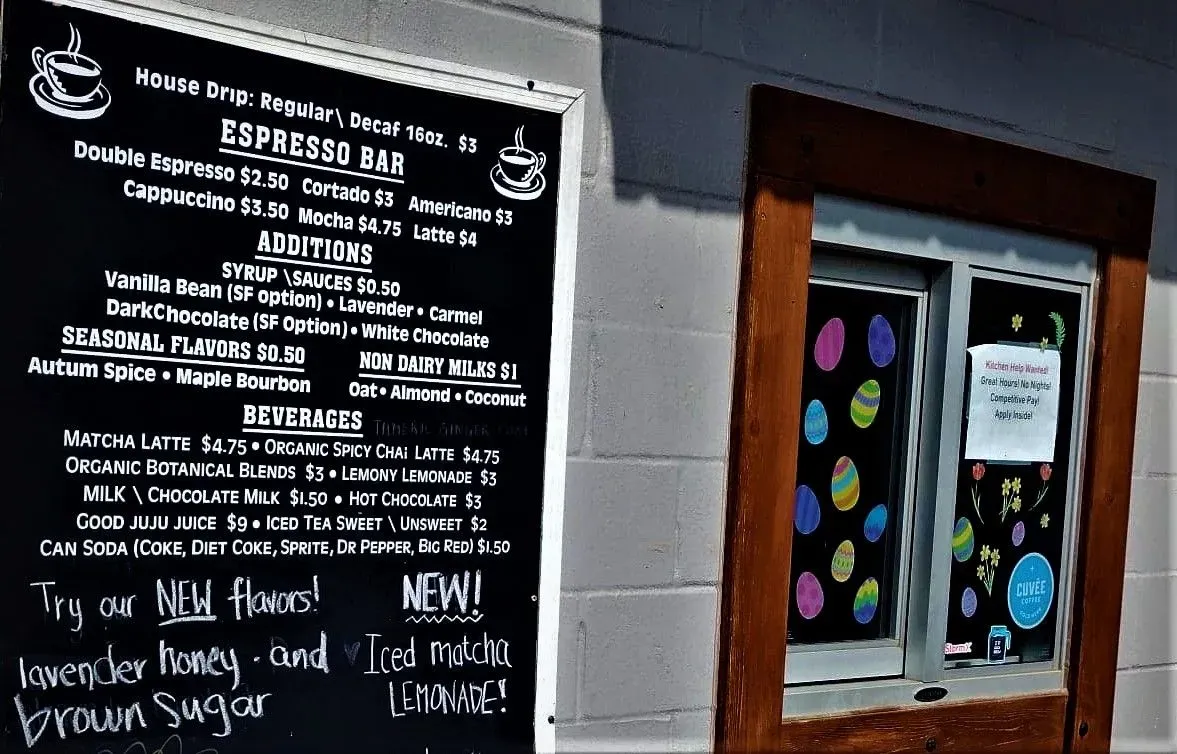 House Drip: Regular\ Decaf 16oz. $3
ESPRESSO BAR
Double Espresso $2.50 Cortado $3 Americano $3
Cappuccino $3.50 Mocha $4.75 Latte $4
ADDITIONS
SYRUP \SAUCES $0.50
Vanilla Bean (SF option) • Lavender • Carmel
DarkChocolate (SF Option) • White Chocolate
SEASONAL FLAVORS $0.50
Autum Spice • Maple Bourbon
NON DAIRY MILKS $1
Oat • Almond • Coconut
BEVERAGES
MATCHA LATTE $4.75 • ORGANIC SPICY CHAI LATTE $4.75
ORGANIC BOTANICAL BLENDS $3 • LEMONY LEMONADE $3
MILK \ CHOCOLATE MILK $1.50 • HOT CHOCOLATE $3
GOOD JUJU JUICE $9 • ICED TEA SWEET \ UNSWEET $2
CAN SODA (COKE, DIET COKE, SPRITE, DR PEPPER, BIG RED) $1.50
Try our NEW flavors!
lavender honey - and
brown sugar
NEW!
Iced matcha
LEMONADE!
Kitchen Help Wanted!
Great Hours! No Nights!
Competitive Pay!
Apply Inside!
CUVÉE
COFFEE